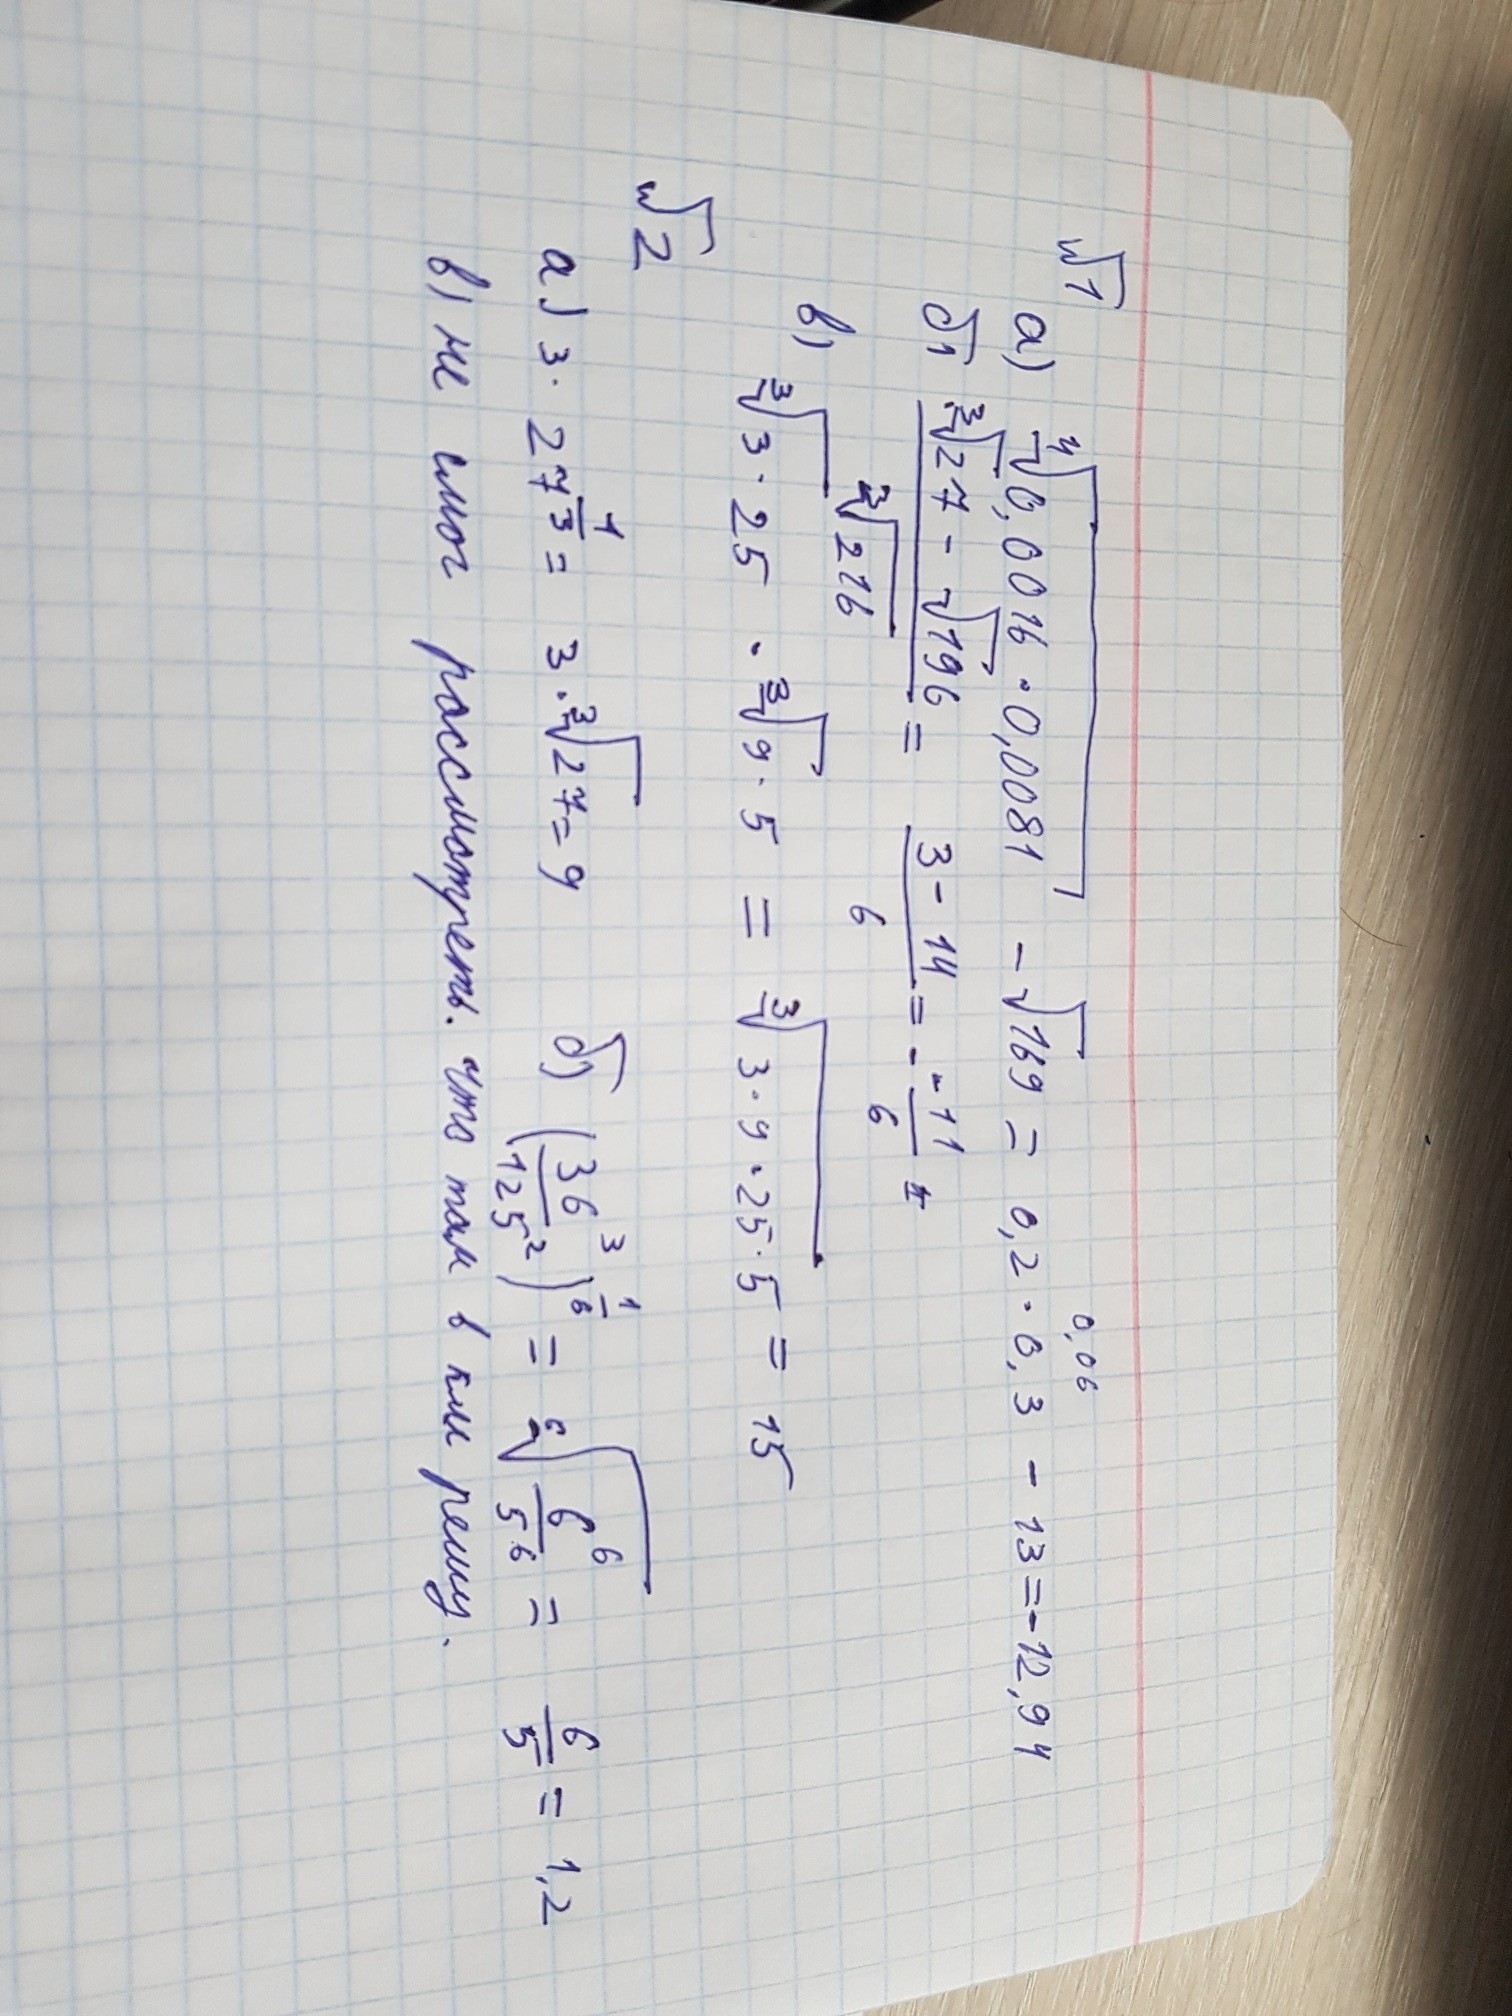 √1
а) ⁴√0,0016 · 0,0081 - √169 = 0,2 · 0,3 - 13 = -12,94
0,06
б) ³√27 - √196 / ³√216 = 3 - 14 / 6 = - -11 / 6 =
в) ³√3 · 25 · ³√9 · 5 = ³√3 · 9 · 25 · 5 = 15
√2
а) 3 · 27^(1/3) = 3 · ³√27 = 9 б) (36³/125²)^(1/6) = ⁶√6⁶/5⁶ = 6/5 = 1,2
в) не смог рассмотреть. что там в кл решу.